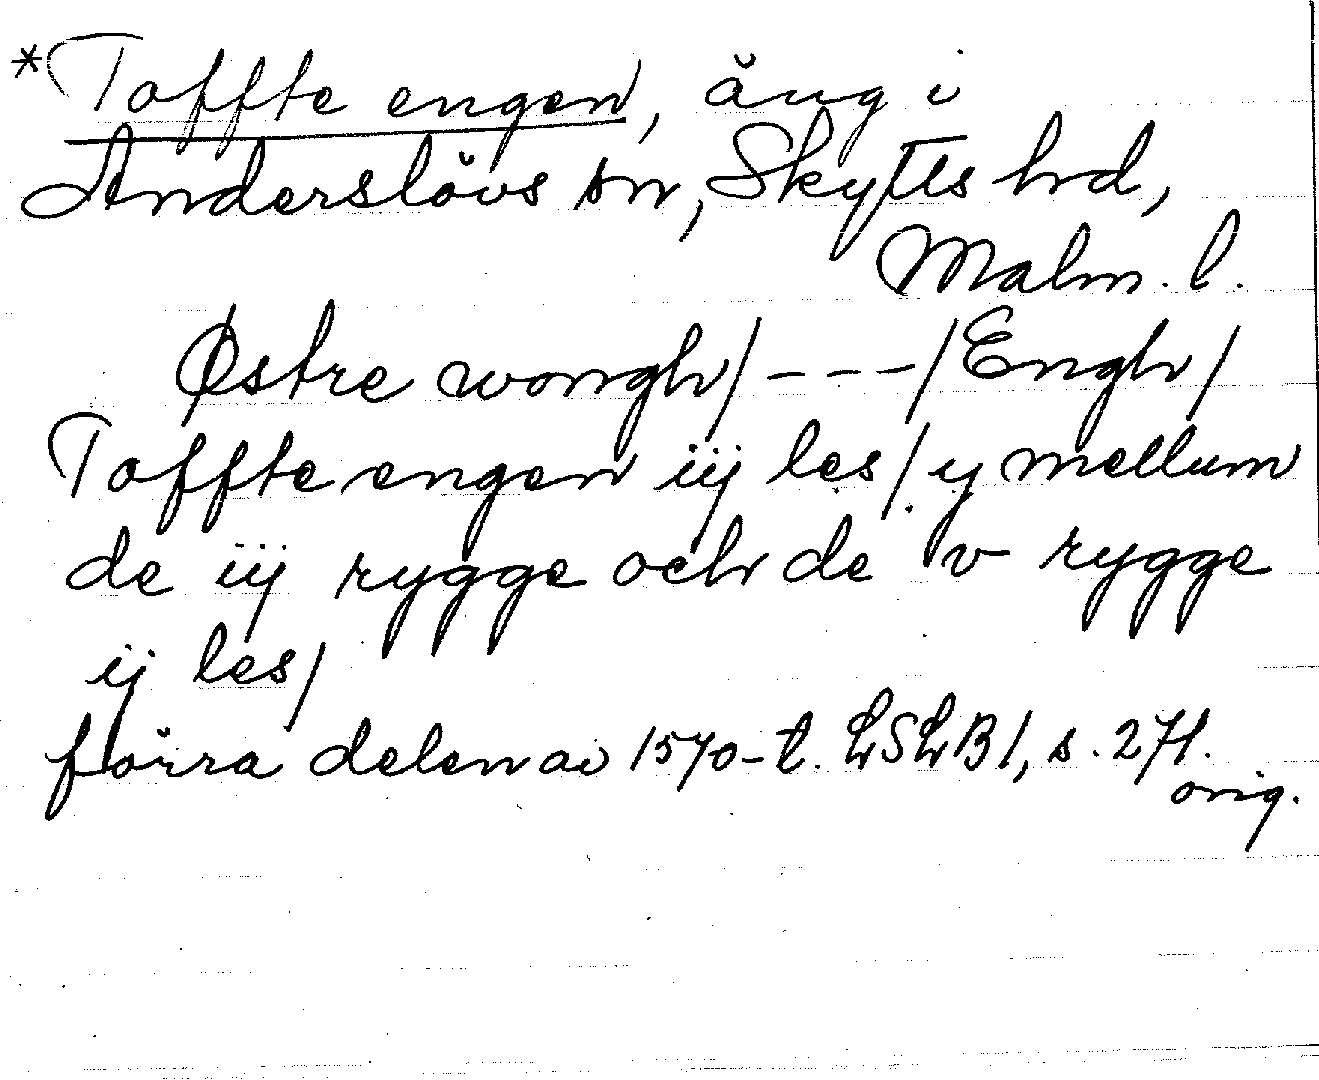 *Toffte engen, äng i
Anderslövs sn, Skytts hd,
Malm. l.
Østre wongh/ - - - /Engh/
Toffte engen iij les/ ij mellum
de iij rygge och de v rygge
ij les/
förra delen av 1570-t. LSLB1, s. 271.
orig.